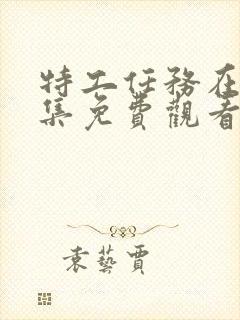 特工任務在
集免費觀看
袁藝賈